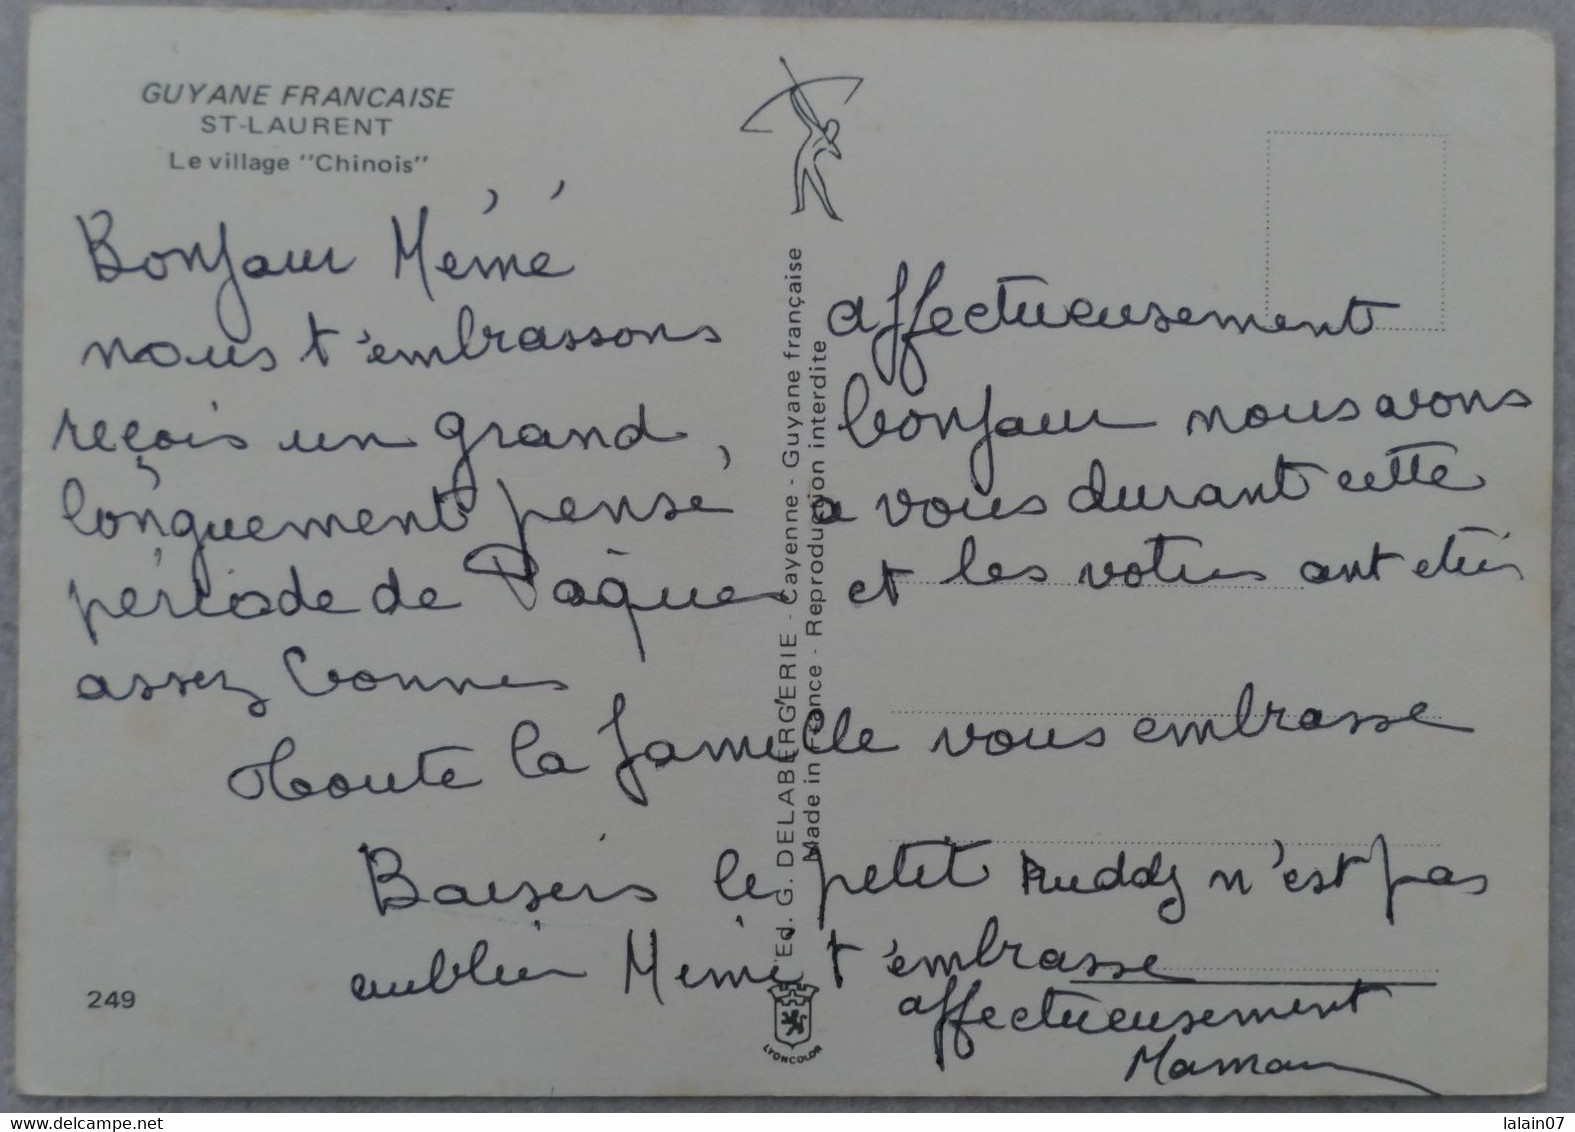 GUYANE FRANCAISE
ST-LAURENT
Le village "Chinois"
Bonjour Mémé
nous t'embrassons affectueusement
reçois un grand bonjour nous avons
longuement pensé à vous durant cette
période de Pâques et les votres ont étés
assez bonnes
toute la famille vous embrasse
Baisers le petit Ruddy n'est pas
oublier Mémé t'embrasse
affectueusement
Maman
Ed. G. DELABERGERIE - Cayenne - Guyane française
Made in France - Reproduction interdite
249
LYONCOLOR
www.delcampe.net
lalain07